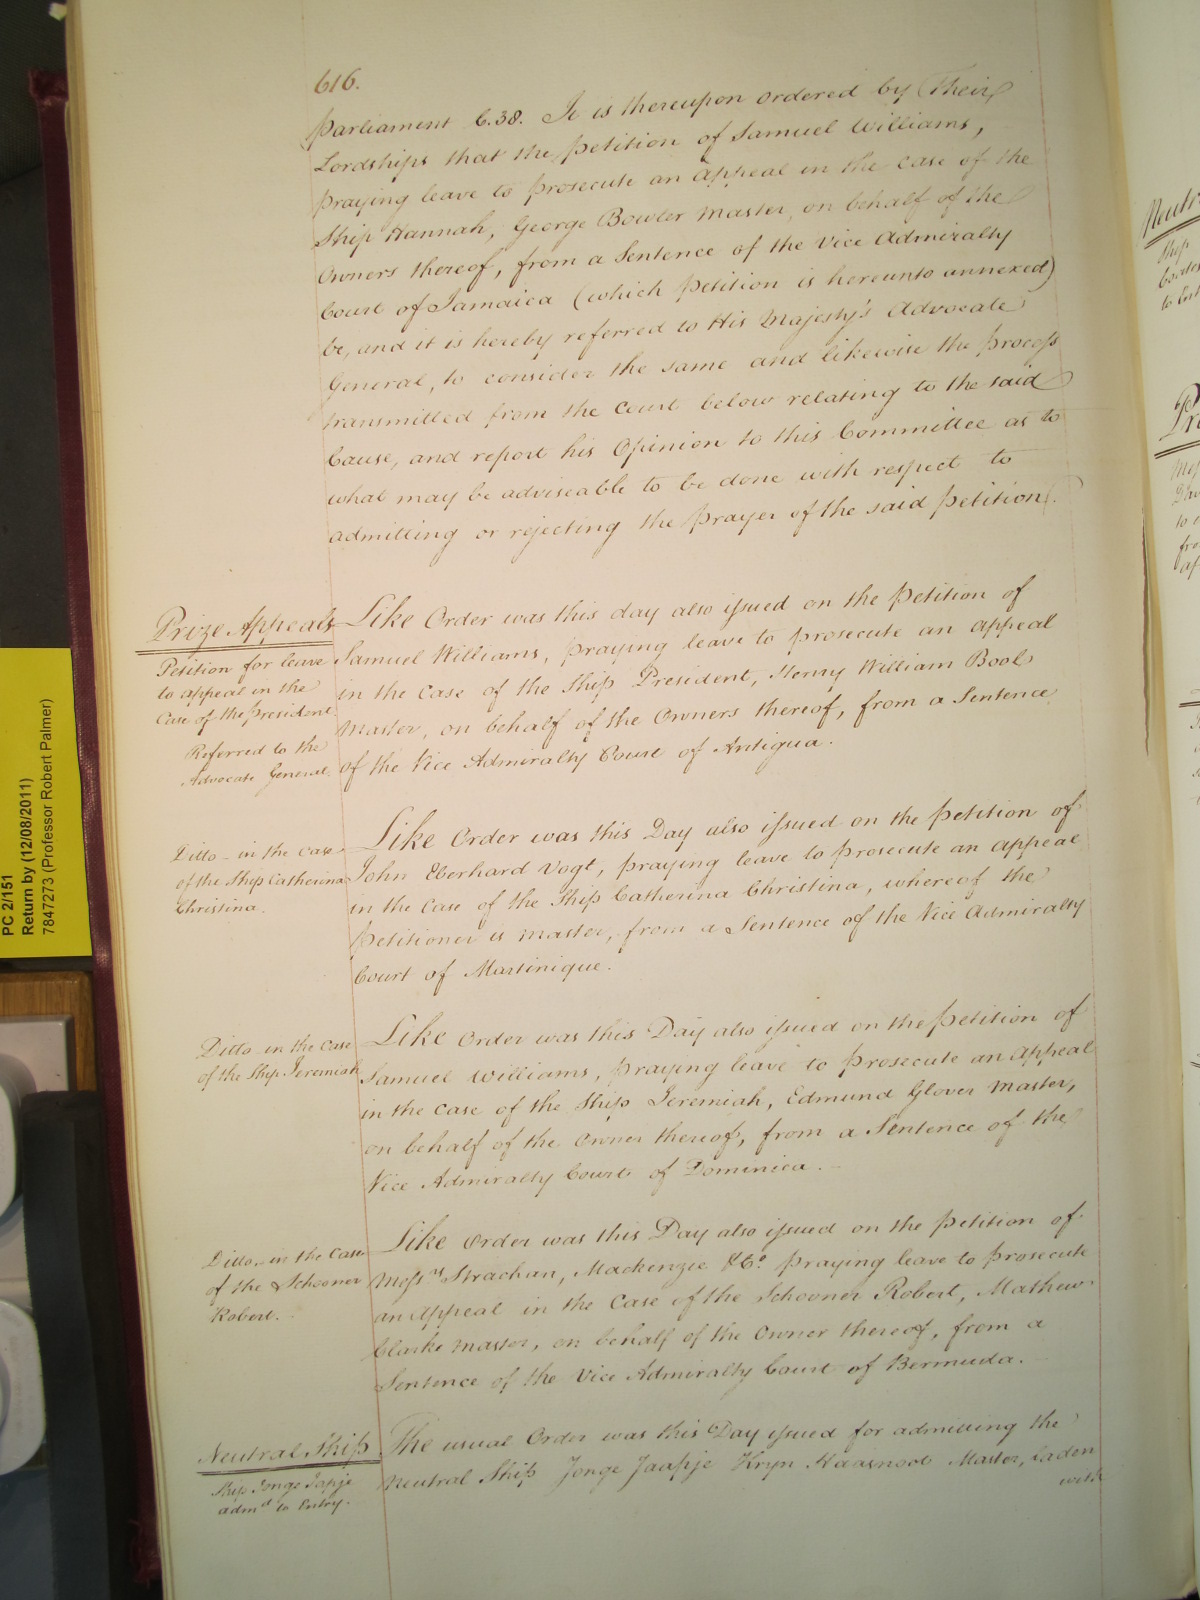 616.
Parliament C.38. It is thereupon ordered by Their
Lordships that the petition of Samuel Williams,
praying leave to prosecute an Appeal in the case of the
Ship Hannah, George Bowler Master, on behalf of the
Owners thereof, from a Sentence of the Vice Admiralty
Court of Jamaica (which Petition is hereunto annexed)
be, and it is hereby referred to His Majesty's Advocate
General, to consider the same and likewise the process
transmitted from the Court below relating to the said
Cause, and report his Opinion to this Committee as to
what may be adviseable to be done with respect to
admitting or rejecting the Prayer of the said Petition.
Prize Appeals
Petition for leave
to appeal in the
Case of the President
Referred to the
Advocate General.
Like Order was this day also issued on the Petition of
Samuel Williams, praying leave to prosecute an appeal
in the case of the Ship President, Henry William Bool
Master, on behalf of the Owners thereof, from a Sentence
of the Vice Admiralty Court of Antigua.
Ditto - in the Case
of the Ship Catherina
Christina.
Like Order was this Day also issued on the Petition of
John Eberhard Vogt, praying leave to prosecute an appeal
in the Case of the Ship Catherina Christina, whereof the
Petitioner is Master, from a Sentence of the Vice Admiralty
Court of Martinique.
Ditto in the Case
of the Ship Jeremiah
Like Order was this Day also issued on the Petition of
Samuel Williams, praying leave to prosecute an Appeal
in the Case of the Ship Jeremiah, Edmund Glover Master,
on behalf of the Owner thereof, from a Sentence of the
Vice Admiralty Court of Dominica.
Ditto, in the Case
of the Schooner
Robert.
Like Order was this Day also issued on the Petition of
Mess.rs Strachan, Mackenzie & Co. praying leave to prosecute
an Appeal in the Case of the Schooner Robert, Mathew
Clarke Master, on behalf of the Owner thereof, from a
Sentence of the Vice Admiralty Court of Bermuda.
Neutral Ship
Ship Jonge Japje
admd. to Entry.
The usual Order was this Day issued for admitting the
Neutral Ship Jonge Jaapje Kryn Haasnoot Master, laden
with
PC 2/151
Return by (12/08/2011)
7847273 (Professor Robert Palmer)